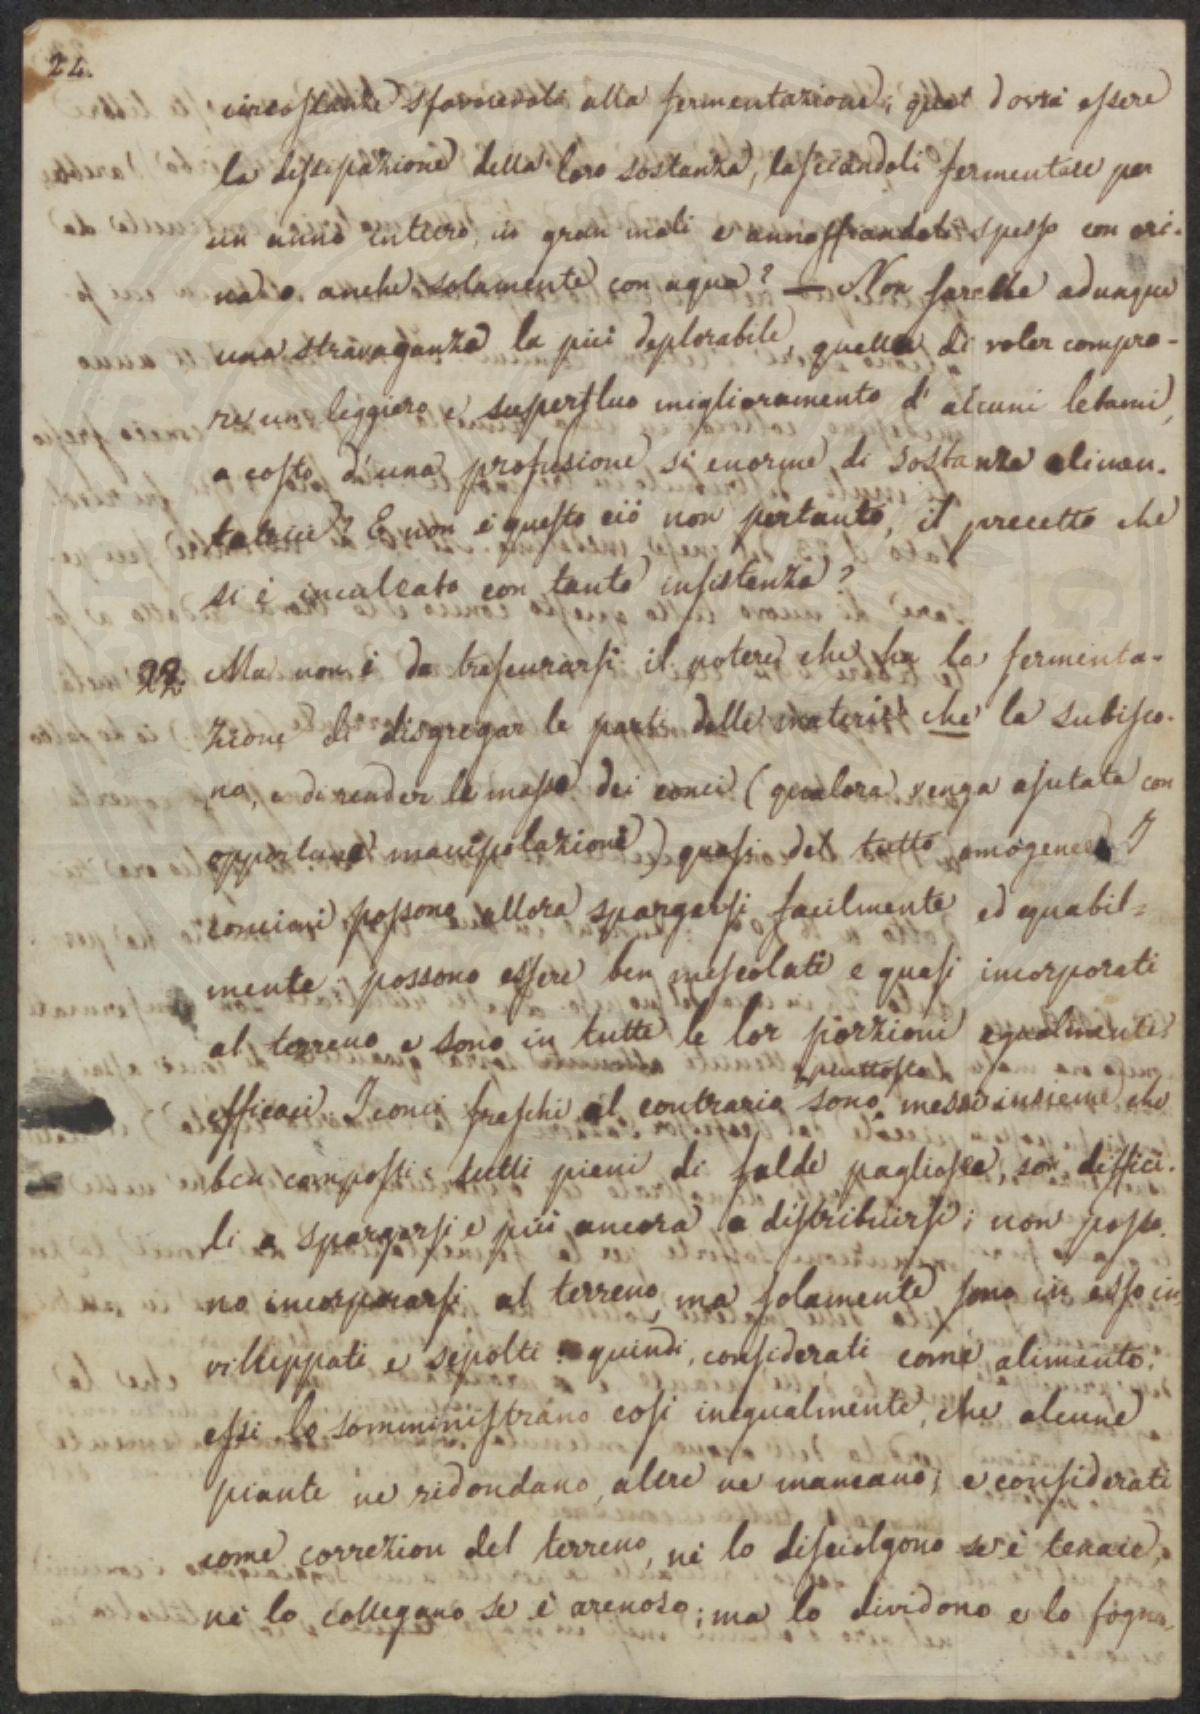 24.
circostanze sfavorevoli alla fermentazione; qual dovrà essere
la dissipazione della loro sostanza, lasciandoli fermentare per
un anno intiero, in gran moli e annaffiandoli spesso con ori-
na o anche solamente con aqua? — Non sarebbe adunque
una stravaganza la più deplorabile, quella di voler compra-
re un leggiero e superfluo miglioramento d'alcuni letami,
a costo d'una profusione si enorme di sostanza alimen-
tatrice? E non è questo ciò non pertanto, il precetto che
si è inculcato con tanta insistenza?
22. Ma non è da trascurarsi il potere che ha la fermenta-
zione di disgregar le parti delle materie che la subisco-
no, e di render la massa dei conci (qualora venga ajutata con
opportune manipolazioni) quasi del tutto omogenea. I
concimi possono allora spargersi facilmente ed equabil=
mente; possono essere ben mescolati e quasi incorporati
al terreno e sono in tutte le lor porzioni egualmente
piuttosto
efficaci. I conci freschi al contrario sono messi insieme che
ben composti: tutti pieni di falde pagliose, son diffici-
li a spargersi e più ancora a distribuirsi; non posso-
no incorporarsi al terreno, ma solamente sono in esso in
villuppati e sepolti: quindi, considerati come alimento,
essi lo somministrano così inegualmente, che alcune
piante ne ridondano, altre ne mancano; e considerati
come correzion del terreno, nè lo disciolgono se è tenace,
nè lo collegano se è arenoso; ma lo dividono e lo fogna-